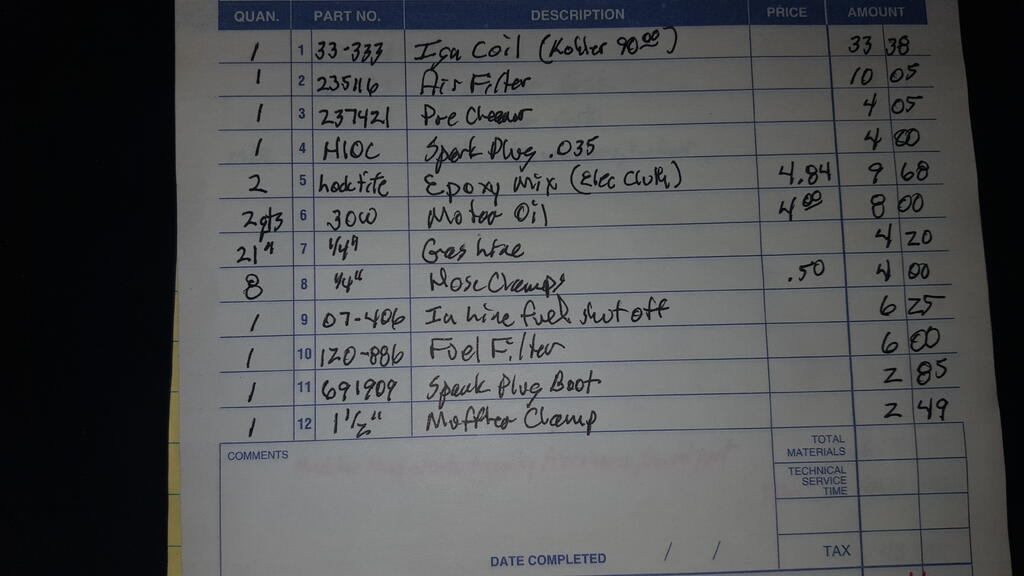 QUAN. PART NO. DESCRIPTION PRICE AMOUNT
1 1 33-333 Ign Coil (Kohler 90.00) 33 38
1 2 235116 Air Filter 10 05
1 3 237421 Pre Cleaner 4 05
1 4 H10C Spark Plug .035 4 00
2 5 Locktite Epoxy Mix (Elec Clutch) 4.84 9 68
2 qts 6 30W Motor Oil 4.00 8 00
21" 7 1/4" Gas Line 4 20
8 8 1/4" Hose Clamps .50 4 00
1 9 07-406 In Line fuel shut off 6 25
1 10 120-886 Fuel Filter 6 00
1 11 691909 Spark Plug Boot 2 85
1 12 1 1/2" Muffler Clamp 2 49
COMMENTS
TOTAL
MATERIALS
TECHNICAL
SERVICE
TIME
DATE COMPLETED / / TAX